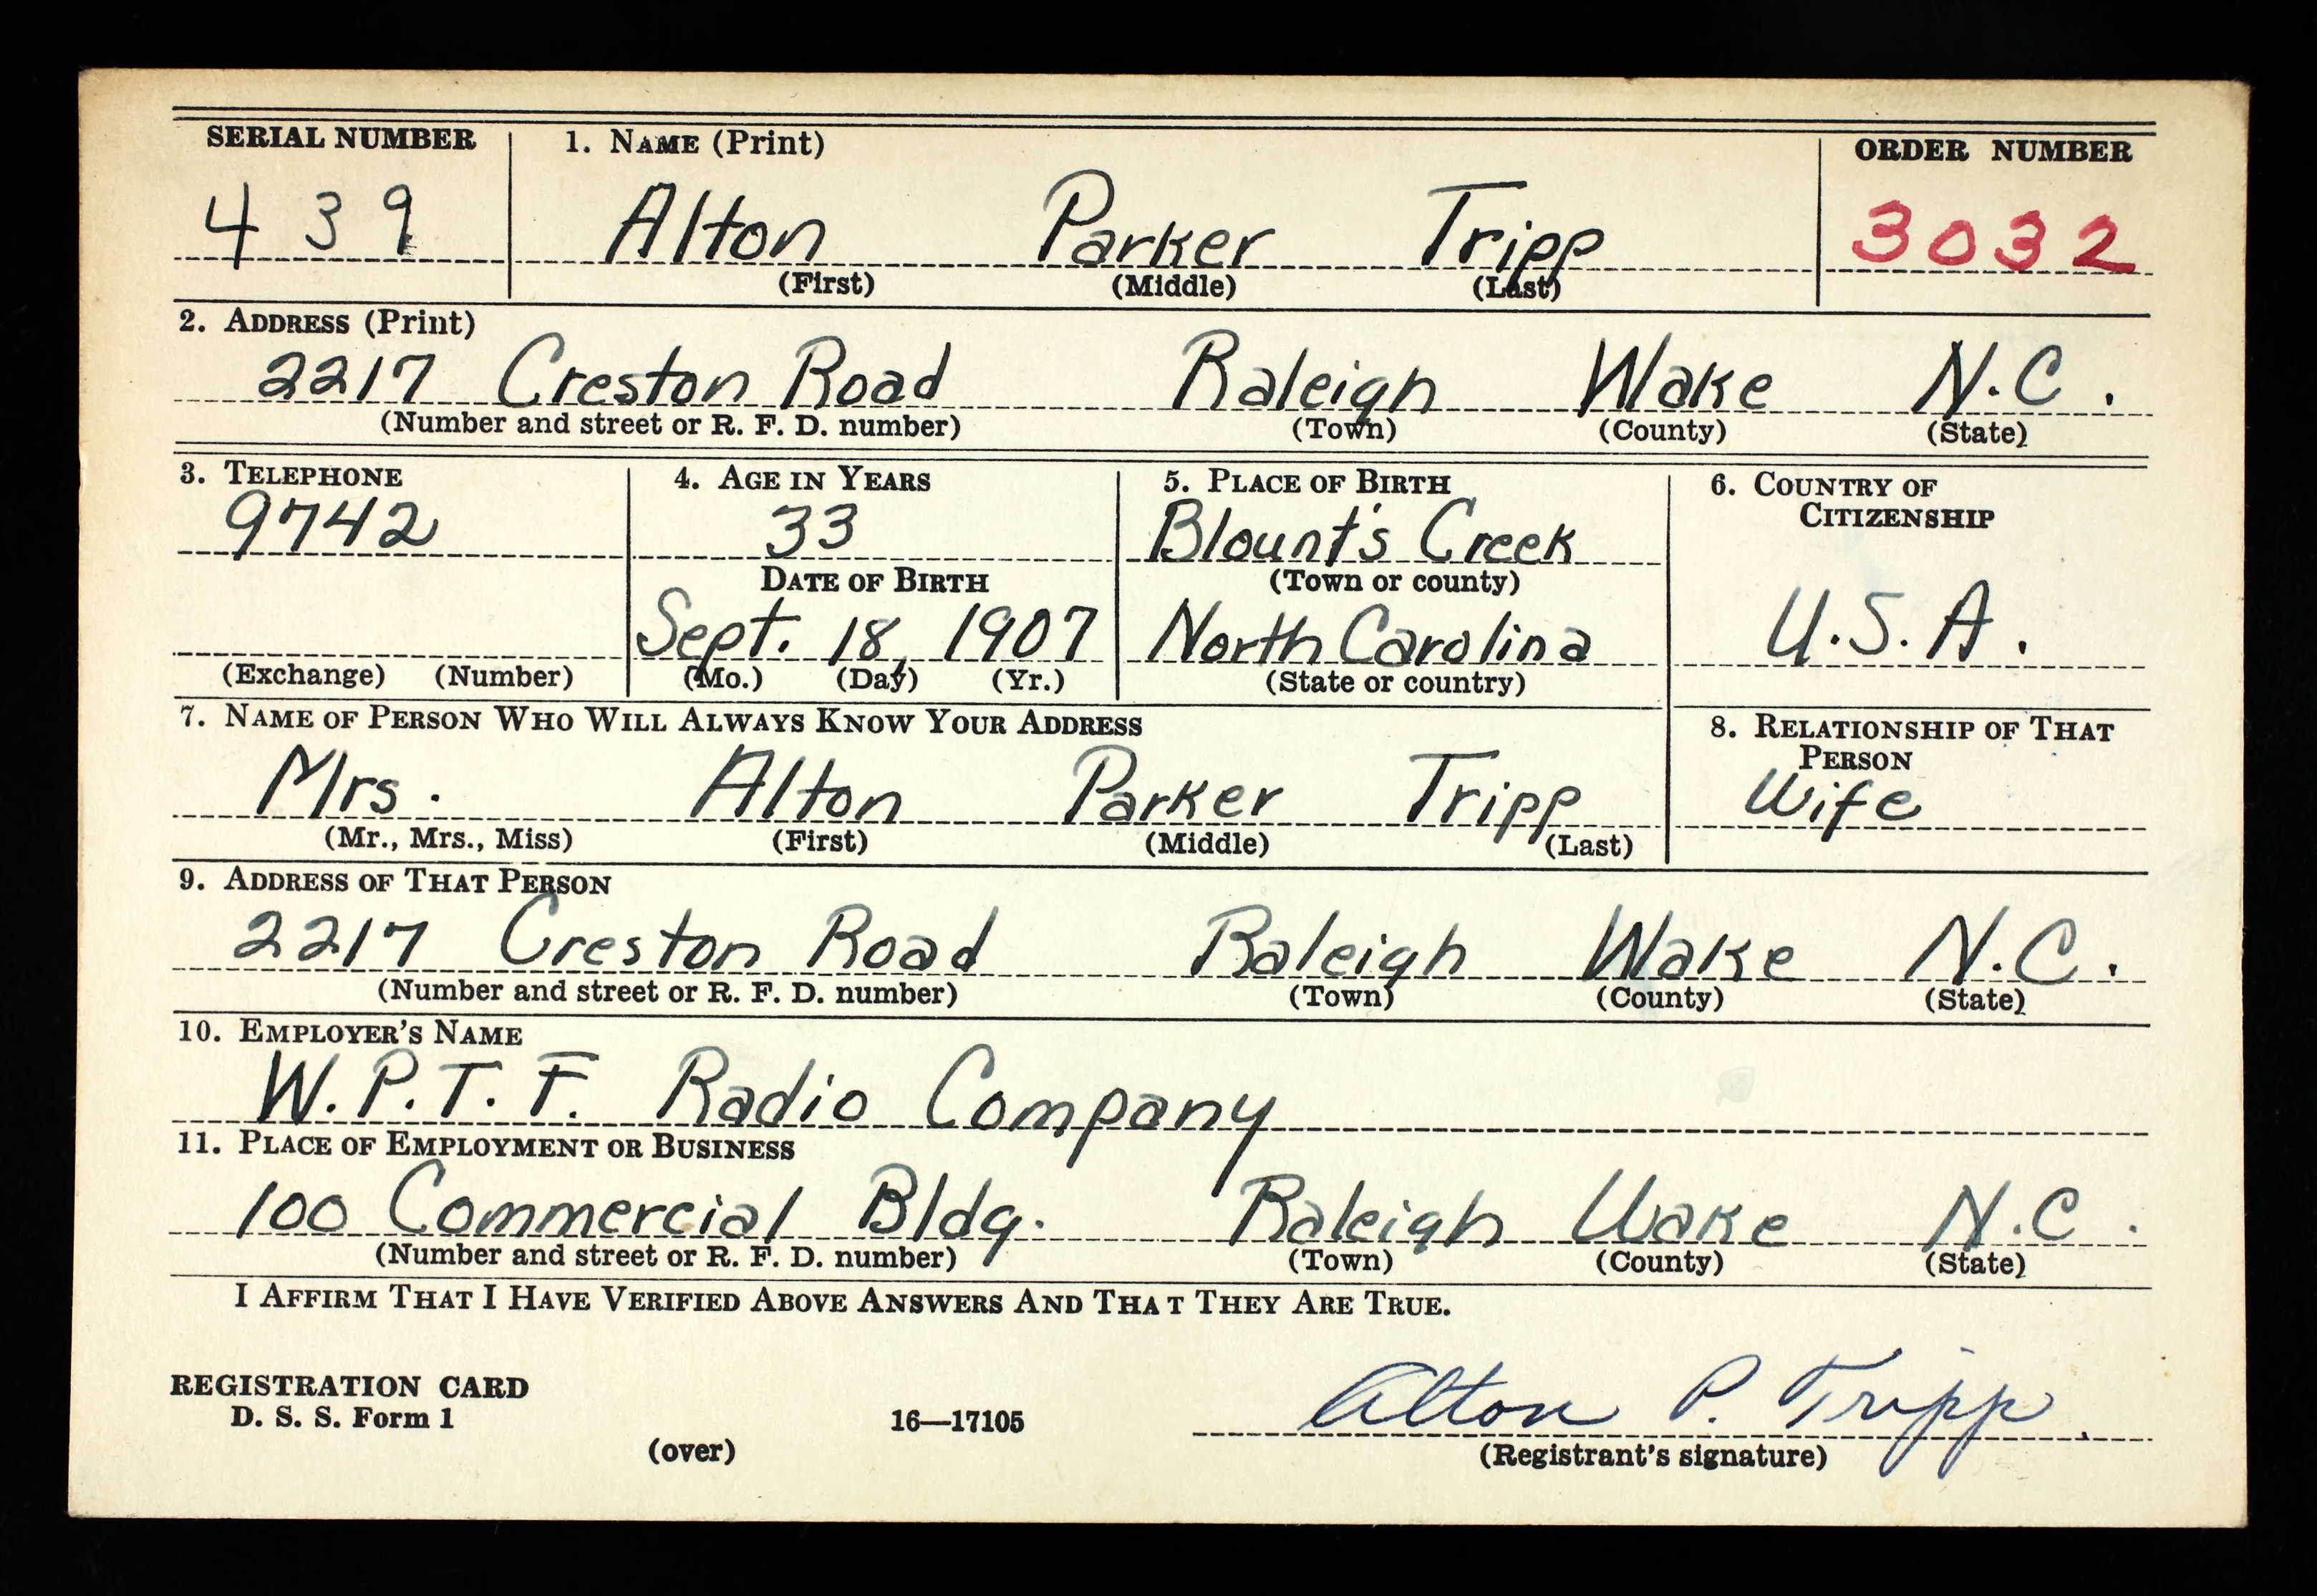 SERIAL NUMBER 1. NAME (Print) ORDER NUMBER
439 Alton Parker Tripp 3032
(First) (Middle) (Last)
2. ADDRESS (Print)
2217 Creston Road Raleigh Wake N.C.
(Number and street or R. F. D. number) (Town) (County) (State)
3. TELEPHONE 4. AGE IN YEARS 5. PLACE OF BIRTH 6. COUNTRY OF
CITIZENSHIP
9742 33 Blount's Creek
DATE OF BIRTH (Town or county)
Sept. 18, 1907 North Carolina U.S.A.
(Exchange) (Number) (Mo.) (Day) (Yr.) (State or country)
7. NAME OF PERSON WHO WILL ALWAYS KNOW YOUR ADDRESS 8. RELATIONSHIP OF THAT
PERSON
Mrs. Alton Parker Tripp Wife
(Mr., Mrs., Miss) (First) (Middle) (Last)
9. ADDRESS OF THAT PERSON
2217 Creston Road Raleigh Wake N.C.
(Number and street or R. F. D. number) (Town) (County) (State)
10. EMPLOYER'S NAME
W.P.T.F. Radio Company
11. PLACE OF EMPLOYMENT OR BUSINESS
100 Commercial Bldg. Raleigh Wake N.C.
(Number and street or R. F. D. number) (Town) (County) (State)
I AFFIRM THAT I HAVE VERIFIED ABOVE ANSWERS AND THAT THEY ARE TRUE.
REGISTRATION CARD
D. S. S. Form 1 16—17105 Alton P. Tripp
(over) (Registrant's signature)